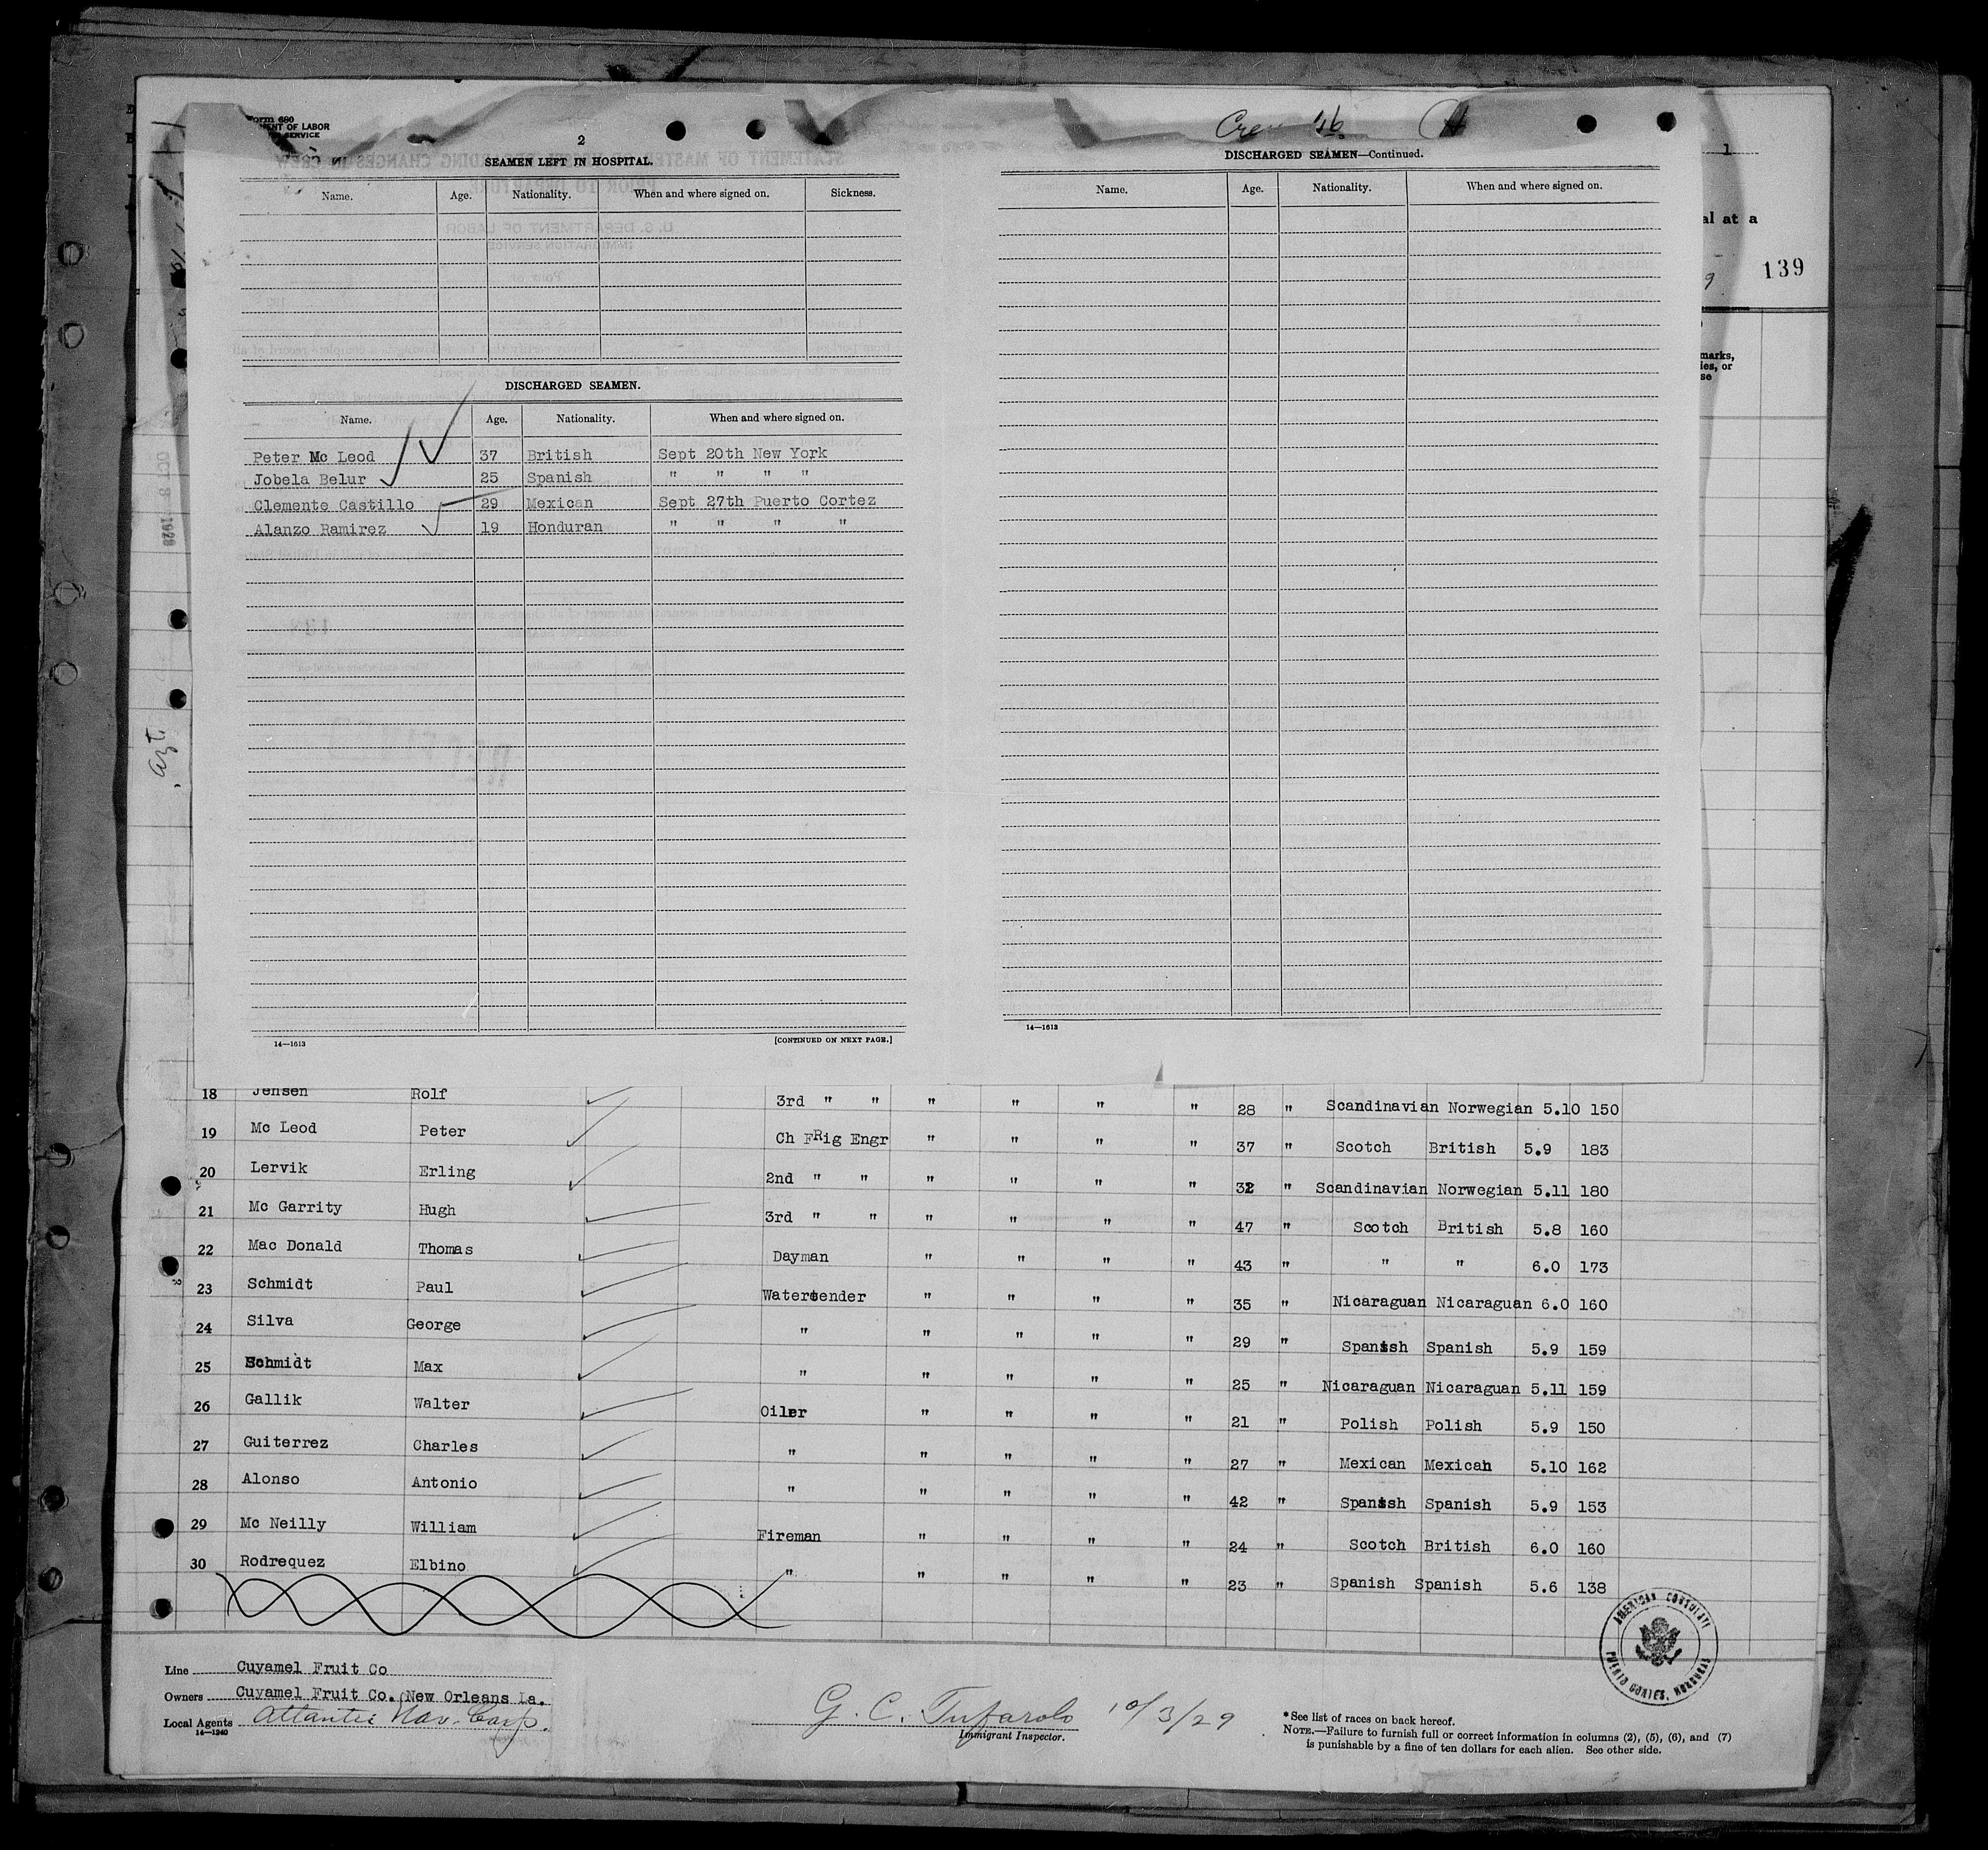 Form 680
MENT OF LABOR
SERVICE
2
SEAMEN LEFT IN HOSPITAL.
Name. Age. Nationality. When and where signed on. Sickness.
DISCHARGED SEAMEN.
Name. Age. Nationality. When and where signed on.
Peter Mc Leod 37 British Sept 20th New York
Jobela Belur 25 Spanish " " " "
Clemente Castillo 29 Mexican Sept 27th Puerto Cortez
Alanzo Ramirez 19 Honduran " " " "
14—1613 [CONTINUED ON NEXT PAGE.]
DISCHARGED SEAMEN—Continued.
Name. Age. Nationality. When and where signed on.
14—1613
1
al at a
139
marks,
ies, or
se
18 Jensen Rolf 3rd " " " " " " 28 " Scandinavian Norwegian 5.10 150
19 Mc Leod Peter Ch FRig Engr " " " " 37 " Scotch British 5.9 183
20 Lervik Erling 2nd " " " " " " 32 " Scandinavian Norwegian 5.11 180
21 Mc Garrity Hugh 3rd " " " " " " 47 " Scotch British 5.8 160
22 Mac Donald Thomas Dayman " " " " 43 " " " 6.0 173
23 Schmidt Paul Watertender " " " " 35 " Nicaraguan Nicaraguan 6.0 160
24 Silva George " " " " " 29 " Spanish Spanish 5.9 159
25 Schmidt Max " " " " " 25 " Nicaraguan Nicaraguan 5.11 159
26 Gallik Walter Oiler " " " " 21 " Polish Polish 5.9 150
27 Guiterrez Charles " " " " " 27 " Mexican Mexican 5.10 162
28 Alonso Antonio " " " " " 42 " Spanish Spanish 5.9 153
29 Mc Neilly William Fireman " " " " 24 " Scotch British 6.0 160
30 Rodrequez Elbino " " " " " 23 " Spanish Spanish 5.6 138
AMERICAN CONSULATE
PUERTO CORTES, HONDURAS
Line Cuyamel Fruit Co
Owners Cuyamel Fruit Co. New Orleans La.
Local Agents Atlantic Nav. Corp.
14—1240
G. C. Tufarolo 10/3/29
Immigrant Inspector.
*See list of races on back hereof.
NOTE.—Failure to furnish full or correct information in columns (2), (5), (6), and (7)
is punishable by a fine of ten dollars for each alien. See other side.